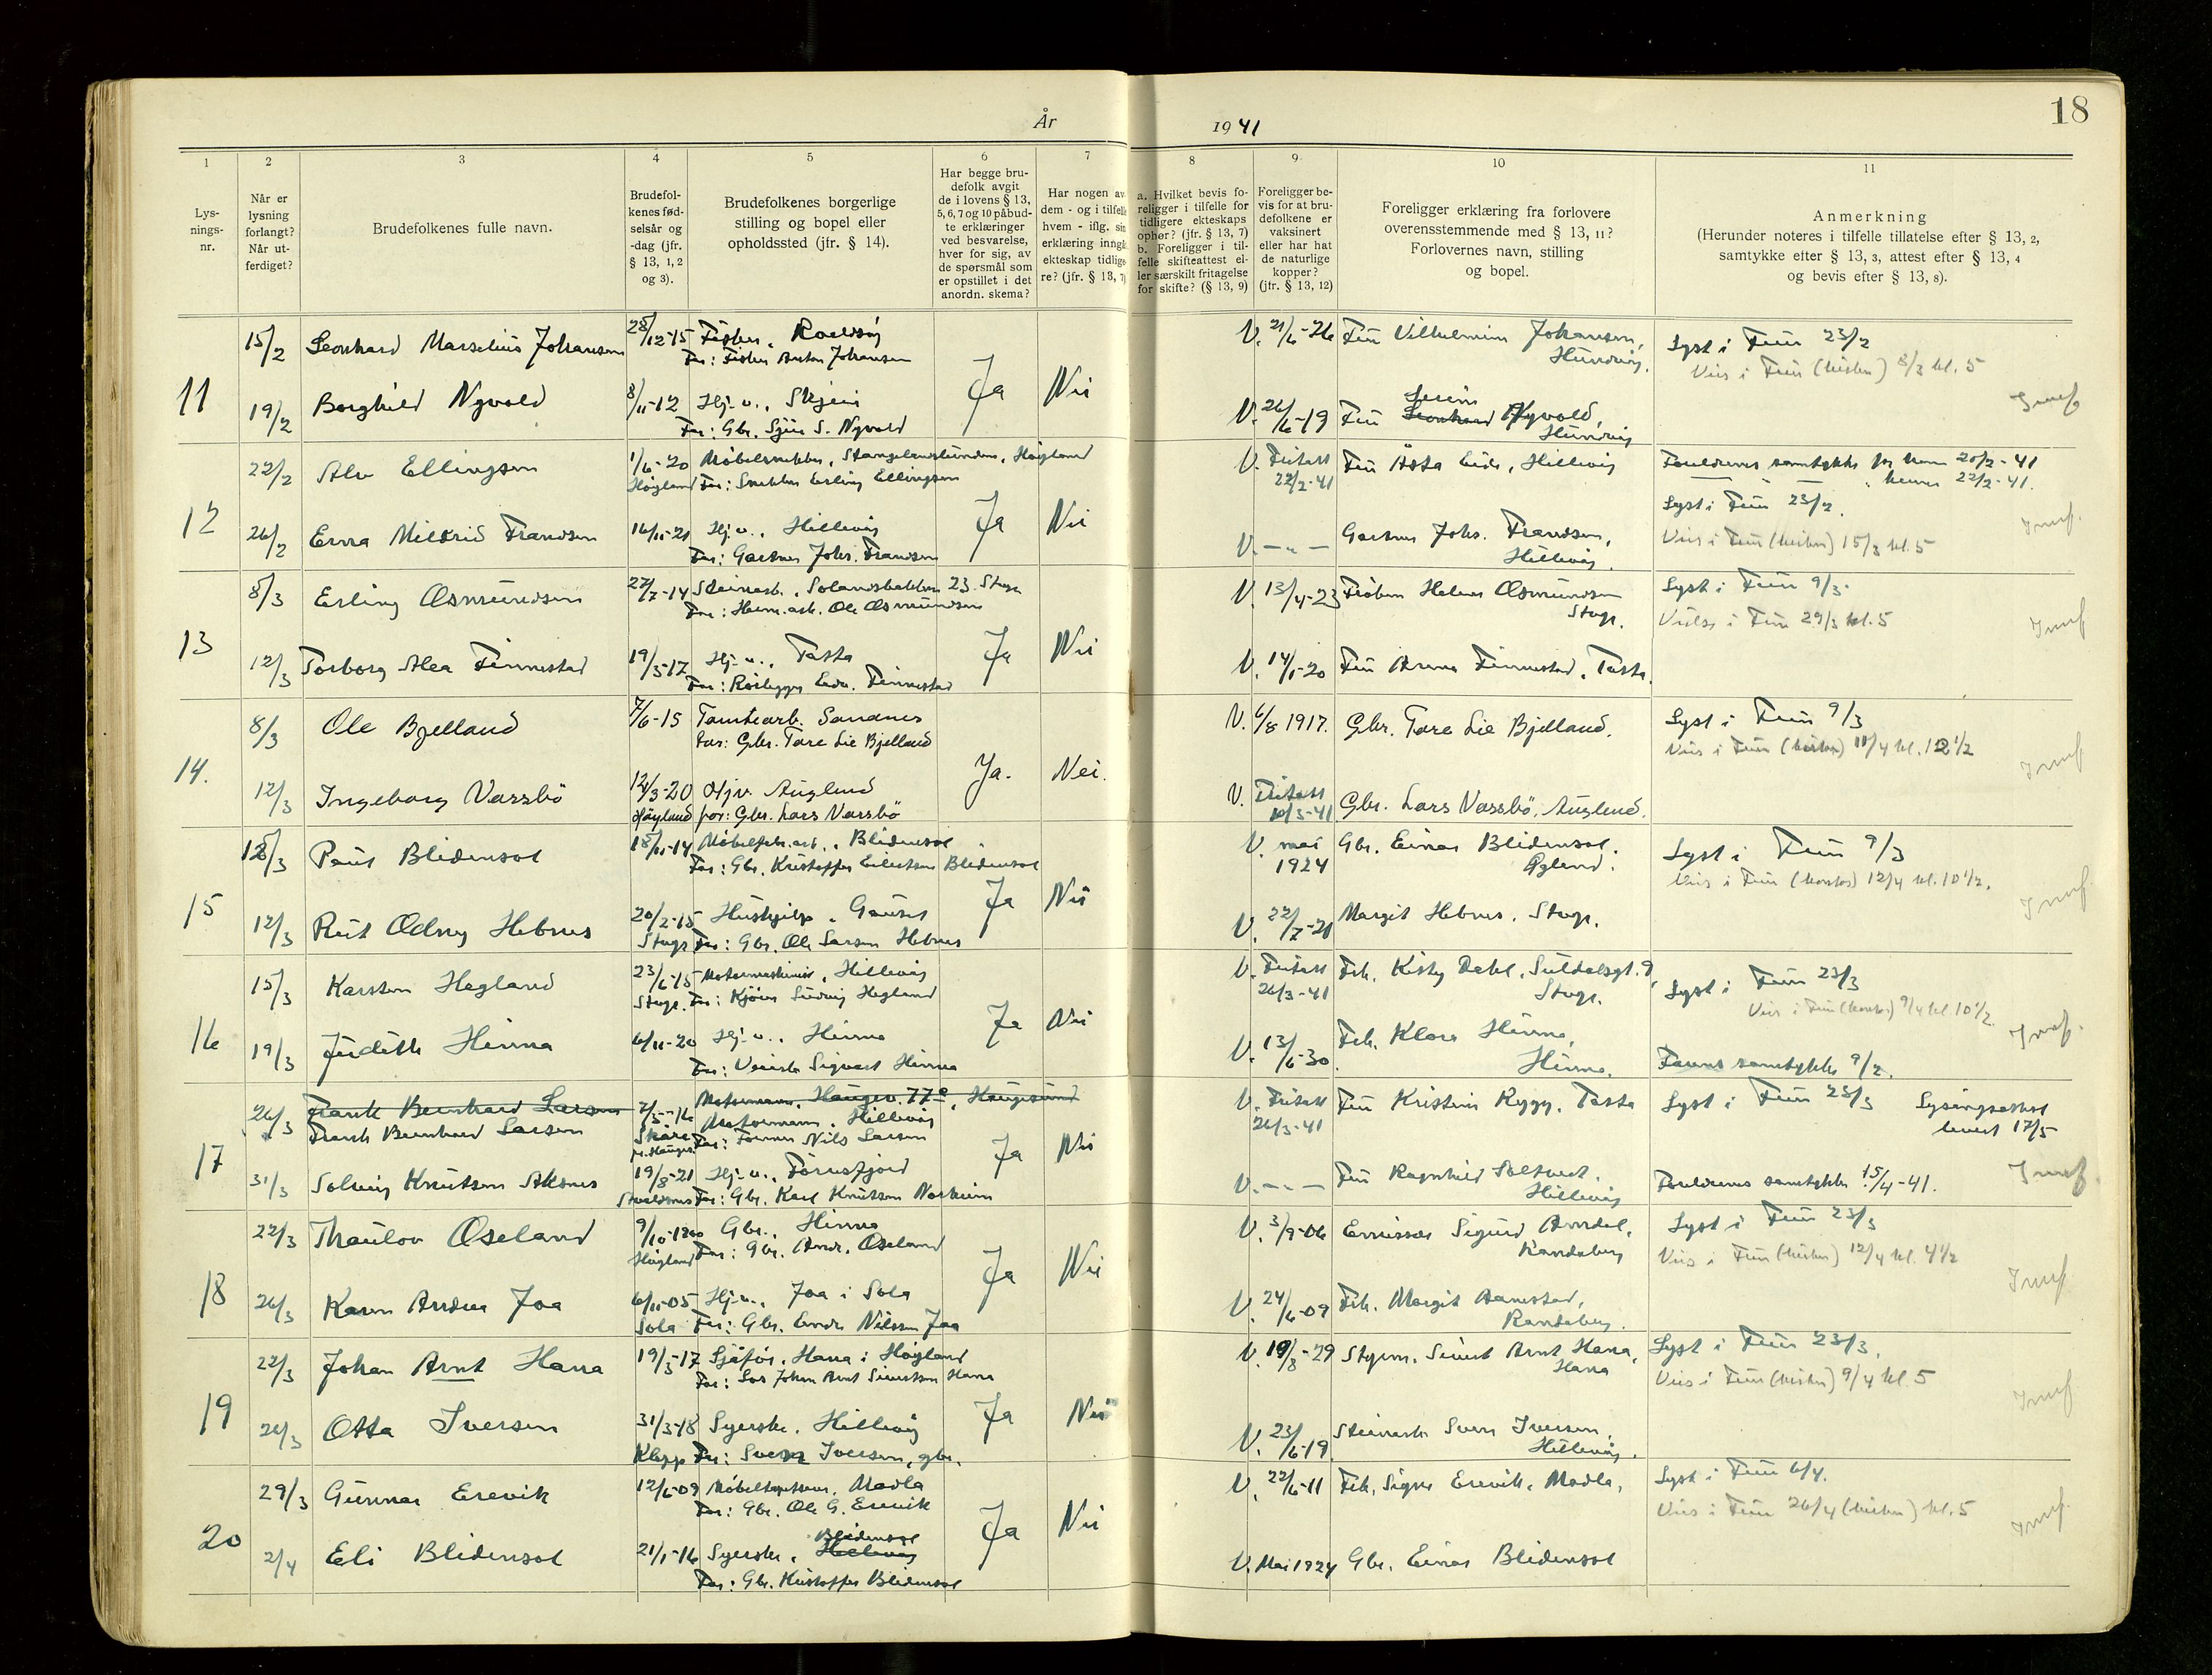 18
År 1941
1
2
3
4
5
6
7
8
9
10
11
Lys-
nings-
nr.
Når er
lysning
forlangt?
Når ut-
ferdiget?
Brudefolkenes fulle navn.
Brudefol-
kenes fød-
selsår og
-dag (jfr.
§ 13, 1, 2
og 3).
Brudefolkenes borgerlige
stilling og bopel eller
opholdssted (jfr. § 14).
Har begge bru-
defolk avgit
de i lovens § 13,
5, 6, 7 og 10 påbud-
te erklæringer
ved besvarelse,
hver for sig, av
de spørsmål som
er opstillet i det
anordn. skema?
Har nogen av
dem - og i tilfelle
hvem - iflg. sin
erklæring inngå
ekteskap tidlige-
re? (jfr. § 13, 7)
a. Hvilket bevis fo-
religger i tilfelle for
tidligere ekteskaps
ophør? (jfr. § 13, 7)
b. Foreligger i til-
felle skifteattest el-
ler særskilt fritagelse
for skifte? (§ 13, 9)
Foreligger be-
vis for at bru-
defolkene er
vaksinert
eller har hat
de naturlige
kopper?
(jfr. § 13, 12)
Foreligger erklæring fra forlovere
overensstemmende med § 13, 11?
Forlovernes navn, stilling
og bopel.
Anmerkning
(Herunder noteres i tilfelle tillatelse efter § 13, 2,
samtykke efter § 13, 3, attest efter § 13, 4
og bevis efter § 13, 8).
11
15/2 Leonhard Marselius Johansen
Far: Fisker Anton Johansen
V. 21/6-26 Fru Vilhelmine Johansen,
Hundvåg.
Lyst i Frue 23/2
Viet i Frue (kirken) 8/3 kl. 5
19/2 Borghild Nyvold 8/11-12 Hj. v.,
Far: Gbr. S. Nyvold
Ja Nei
V. 26/6-19 Fru Nyvold,
Hundvåg
12
22/2 Alv Ellingsen 1/6-20 Møbelsnekker, Stangelandslunden, Høyland
Høyland Far: Snekker Erling Ellingsen
V. Fritatt 22/2-41 Fru Åsta Eide, Hillevåg
Foreldrenes samtykke for ham 20/2-41
— " — " henne 22/2-41.
Lyst i Frue 23/2.
26/2 Erna Mildrid Frandsen 16/11-21 Hj. v., Hillevåg
Far: Gartner Johs. Frandsen
Ja Nei
V. — " — Gartner Johs. Frandsen,
Hillevåg.
Viet i Frue (kirken) 15/3 kl. 5
13
8/3 Erling Osmundsen 27/7-14 Steinarb., Solandsbakken 23. Stvgr.
Far: Herm.arb. Ole Osmundsen
V. 13/4-23 Frøken Helene Osmundsen
Stvgr.
Lyst i Frue 9/3.
Vielse i Frue 29/3 kl. 5
12/3 Torborg Alea Finnestad 19/3-17 Hj. v., Tasta
Far: Rørlegger Edv. Finnestad
Ja Nei
V. 14/1-20 Fru Anna Finnestad, Tasta.
14.
8/3 Ole Bjelland 7/6-15 Tomtearb. Sandnes
far: Gbr. Tore Lie Bjelland
V. 6/8 1917. Gbr. Tore Lie Bjelland.
Lyst i Frue 9/3
Viet i Frue (kirken) 11/4 kl. 12 1/2
12/3 Ingeborg Vassbö 12/3-20 Hjv. Auglend
Høyland far: Gbr. Lars Vassbö
Ja. Nei.
V. Fritatt 10/3-41 Gbr. Lars Vassbö, Auglend.
15
Paul Blidensol 18/11-14 Møbelfabr.arb., Blidensol
Far: Gbr. Kristoffer Eilertsen Blidensol
V. mai 1924 Gbr. Einar Blidensol.
Lyst i Frue 9/3
Viet i Frue (kontor) 12/4 kl. 10 1/2.
12/3 Rut Odny Hebnes 20/2-15 Hushjelp, Gausel
Stvgr. Far: Gbr. Ole Larsen Hebnes
Ja Nei
V. 22/7-21 Margit Hebnes. Stvgr.
16
15/3 Karsten Hegland 23/6-15 Motormaskinist, Hillevåg
Stvgr. Far: Ludvig Hegland
V. Fritatt 26/3-41 Frk. Kitty Dahl, Suldalsgt. 9,
Stvgr.
Lyst i Frue 23/3
Viet i Frue (kontor) 9/4 kl 10 1/2.
19/3 Judith Hinna 6/11-20 Hj. v., Hinna
Far: Sigvart Hinna
Ja Nei
V. 13/6-30. Frk. Klara Hinna,
Hinna.
Farens samtykke 9/2.
17
26/3 Frank Bernhard Larsen 7/3-16 Motormann, Haugev. 77e, Haugesund
Frank Bernhard Larsen Motormann, Hillevåg
Skåre Far: Former Nils Larsen
V. Fritatt 26/3-41 Fru Kristine Rygg, Tasta
Lyst i Frue 23/3 Lysingsattest
levert 17/5
31/3 Solveig Knutsen Aksnes 19/8-21 Hj. v., Førresfjord
Far: Gbr. Karl Knutsen Norheim
Ja Nei
V. — " — Fru Ragnhild Soltvedt.
Hillevåg
Foreldrenes samtykke 15/4-41.
18
22/3 Thaulov Oseland Gbr., Hinna
Høyland Far: Gbr. Andr. Oseland
V. 3/9-06 Ermissær Sigurd Årrdal,
Randaberg
Lyst i Frue 23/3
Viet i Frue (kirken) 12/4 kl. 4 1/2
26/3 Karen Andrea Joa 6/11-05 Hj. v., Joa i Sola
Sola Far: Gbr. Endre Nilssen Joa
Ja Nei
V. 24/6-09 Frk. Margit Harestad,
Randaberg.
19
22/3 Johan Arnt Hana 19/3-17 Sjåfør, Hana i Høyland
Far: Los Johan Arnt Sivertsen Hana
V. 19/8-29 Styrm. Sivert Arnt Hana,
Hana
Lyst i Frue 23/3.
Viet i Frue (kirken) 9/4 kl. 5
26/3 Otta Iversen 31/3-18 Syerske, Hillevåg
Klepp Far: Sven Iversen, gbr.
Ja Nei
V. 23/6-19. Steinarb. Sven Iversen,
Hillevåg.
20
29/3 Gunnar Erevik 12/6-09 Møbeltapetserer, Madla
Far: Gbr. Ole G. Erevik
V. 22/6-11 Frk. Signe Erevik, Madla.
Lyst i Frue 6/4.
Viet i Frue 26/4 (kirken) kl. 5
2/4 Eli Blidensol 21/1-16 Syerske, Blidensol
Far: Gbr. Kristoffer Blidensol
Ja Nei
V. Mai 1924 Gbr. Einar Blidensol